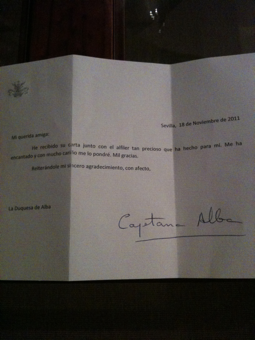 Sevilla, 18 de Noviembre de 2011
Mi querida amiga:
He recibido su carta junto con el alfiler tan precioso que ha hecho para mí. Me ha
encantado y con mucho cariño me lo pondré. Mil gracias.
Reiterándole mi sincero agradecimiento, con afecto,
La Duquesa de Alba
Cayetana Alba